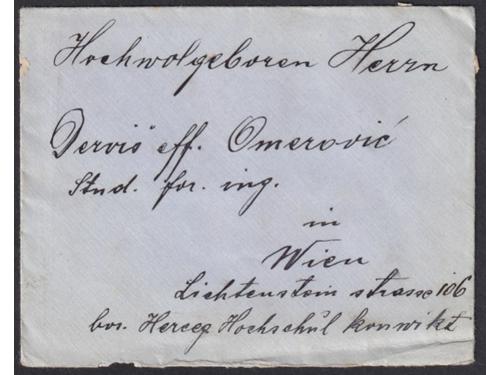 Hochwolgeboren Herrn
Derviš eff. Omerović
Stud. for. ing.
in
Wien
Lichtenstein strasse 106
bos. Herceg Hochschul konwikt